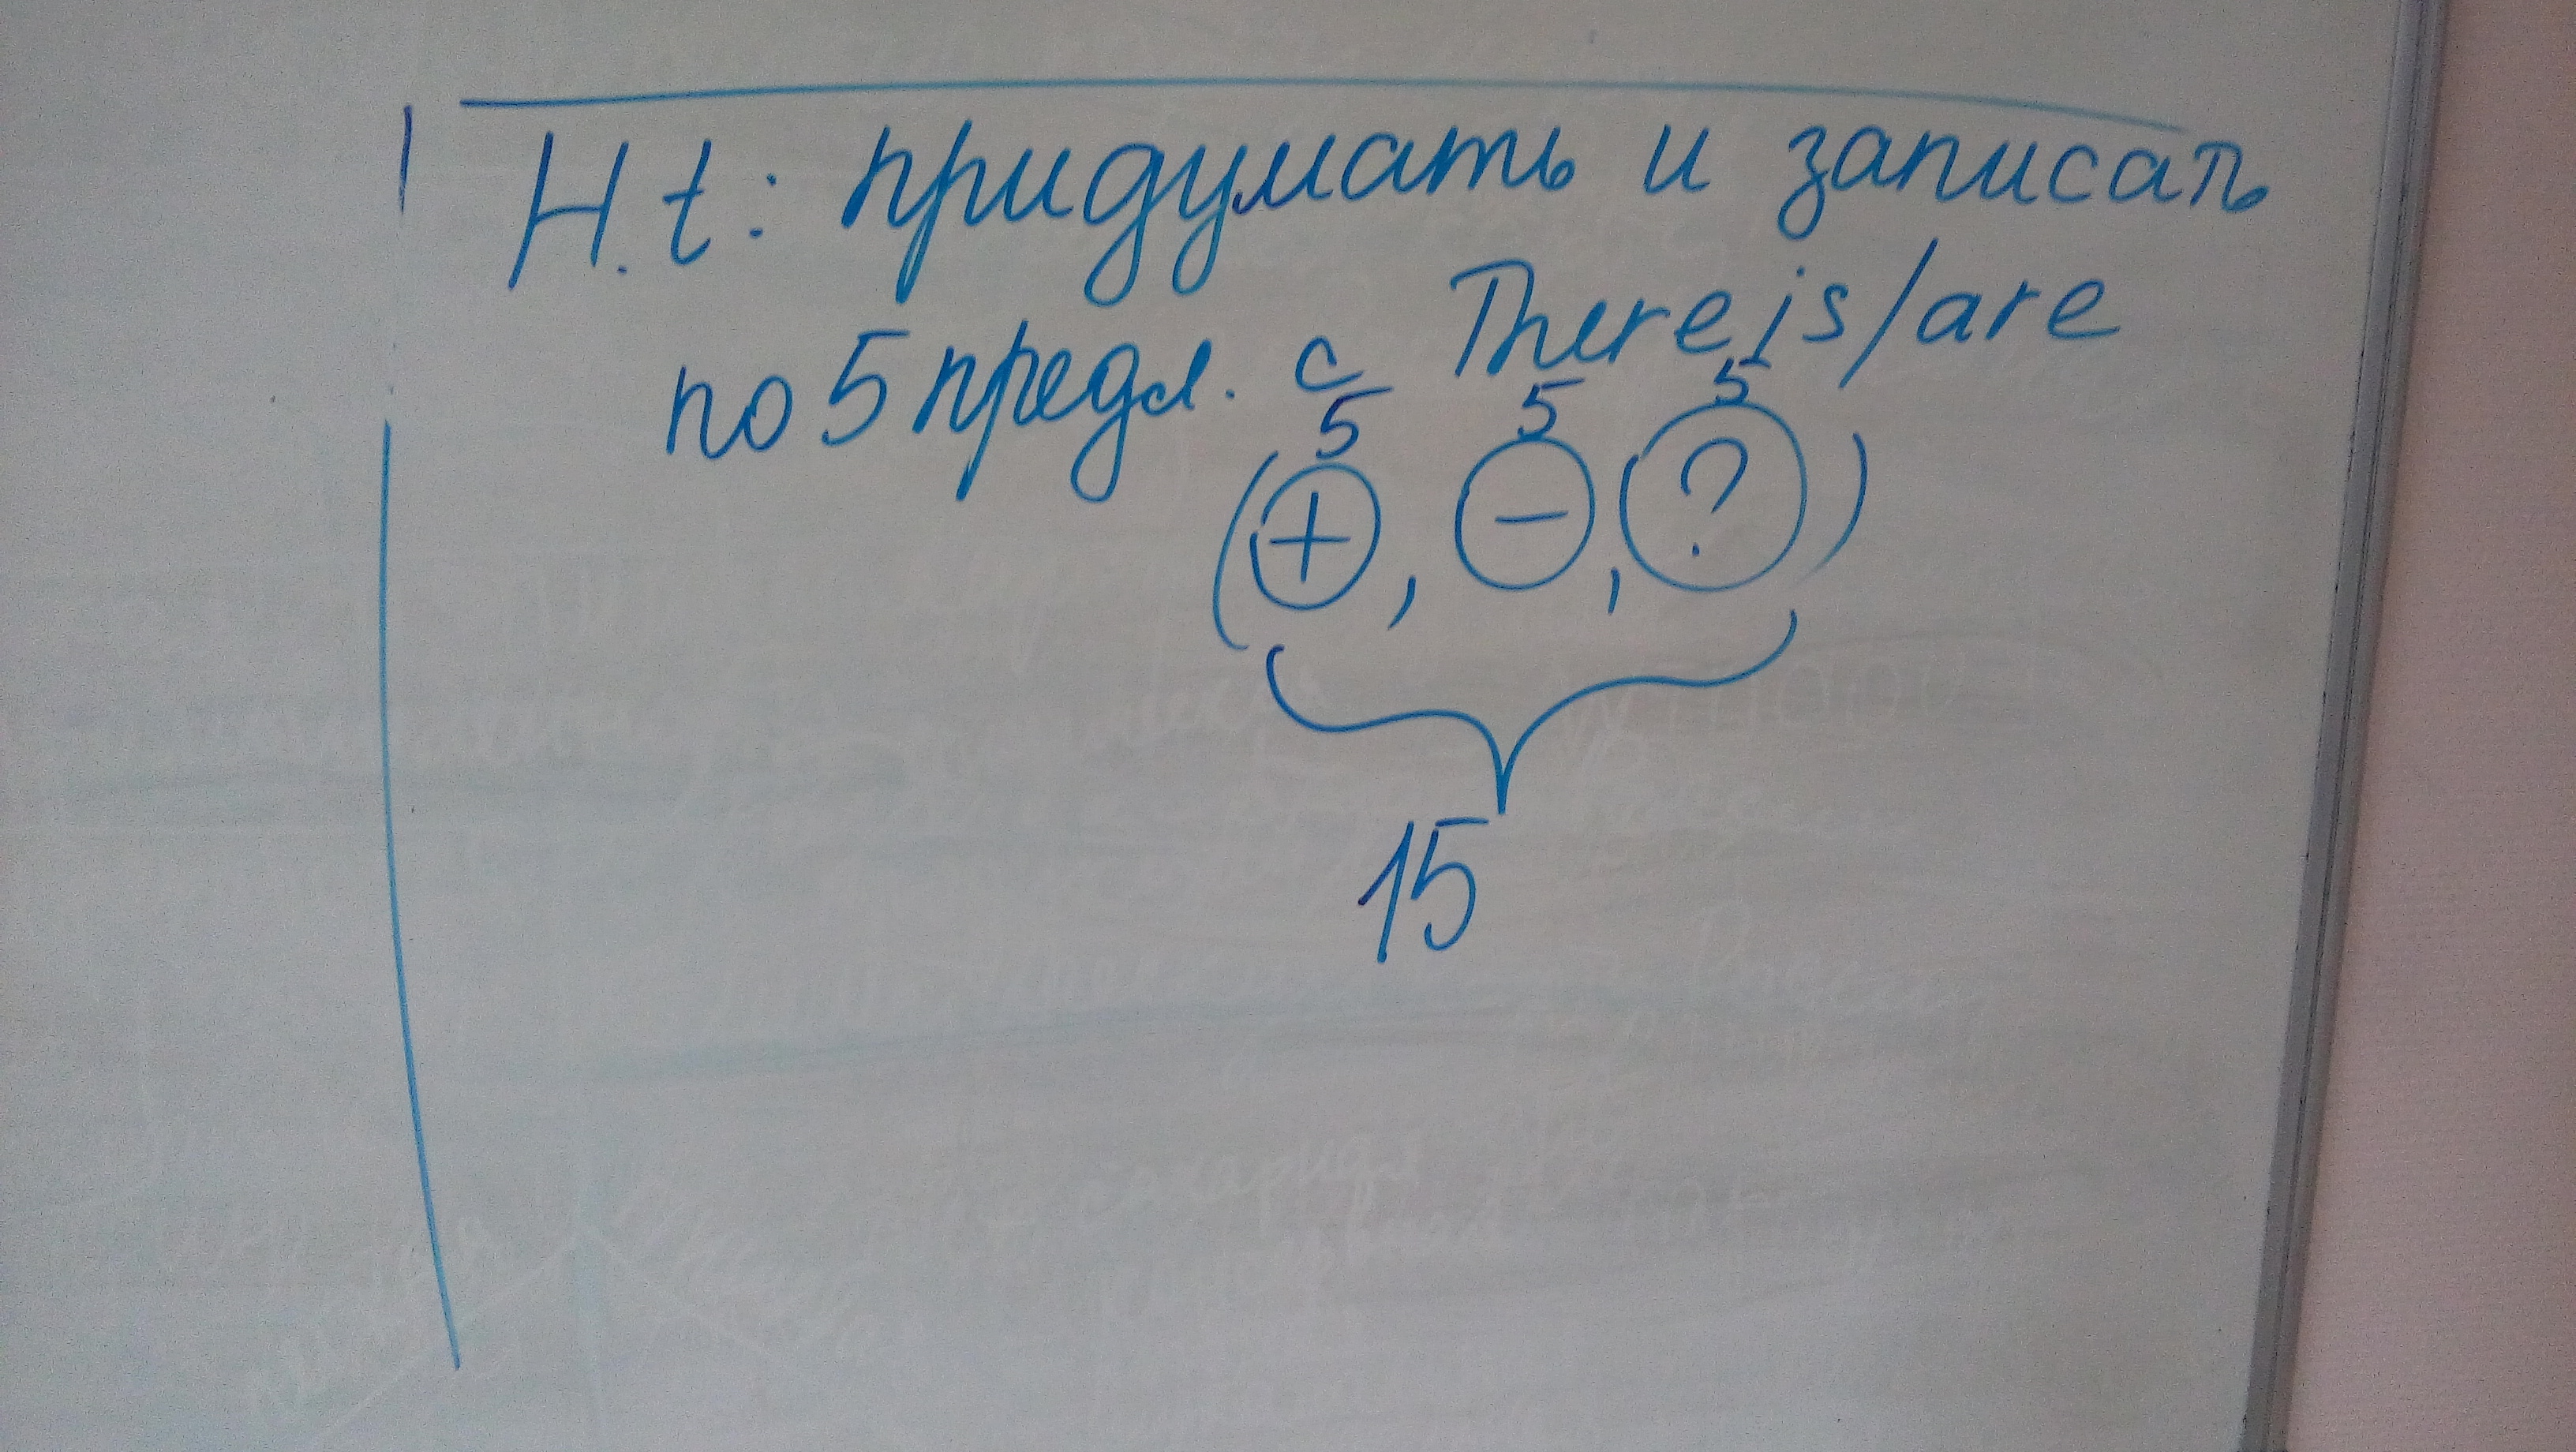 H.t: придумать и записать
по 5 предл. с There is/are
5 5 5
(+, -, ?)
15